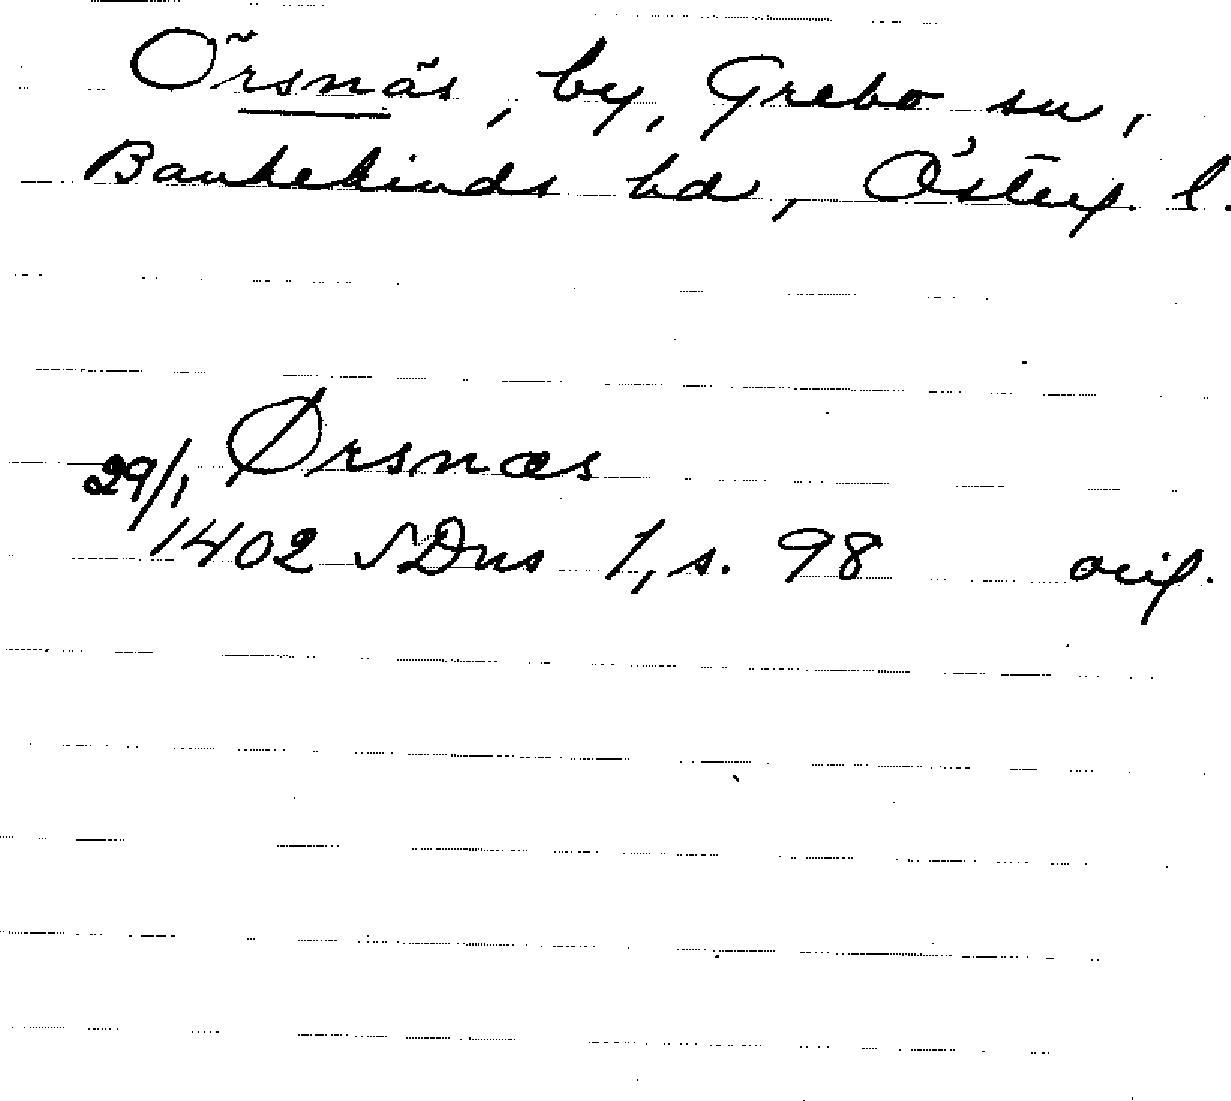 Örsnäs, by, Grebo sn,
Bankekinds hd, Österg. l.
Ørsnæs
29/1
1402 SDns 1, s. 98 orig.